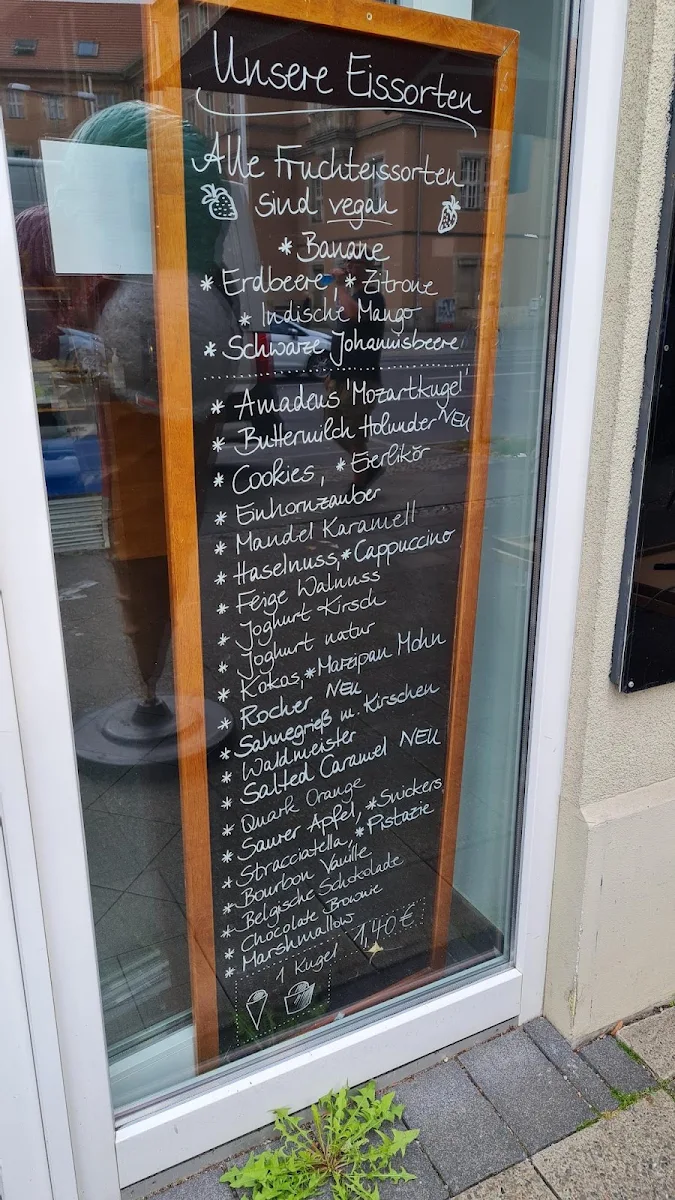 Unsere Eissorten
Alle Fruchteissorten
sind vegan
* Banane
* Erdbeere, * Zitrone
* Indische Mango
* Schwarze Johannisbeere
* Amadeus 'Mozartkugel'
* Buttermilch Holunder NEU
* Cookies, * Eierlikör
* Einhornzauber
* Mandel Karamell
* Haselnuss, * Cappuccino
* Feige Walnuss
* Joghurt Kirsch
* Joghurt natur
* Kokos, * Marzipan Mohn
* Rocher NEU
* Sahnegrieß m. Kirschen
* Waldmeister
* Salted Caramel NEU
* Quark Orange
* Saurer Apfel, * Snickers
* Stracciatella, * Pistazie
* Bourbon Vanille
* Belgische Schokolade
* Chocolate Brownie
* Marshmallow
1 Kugel 1,40 €